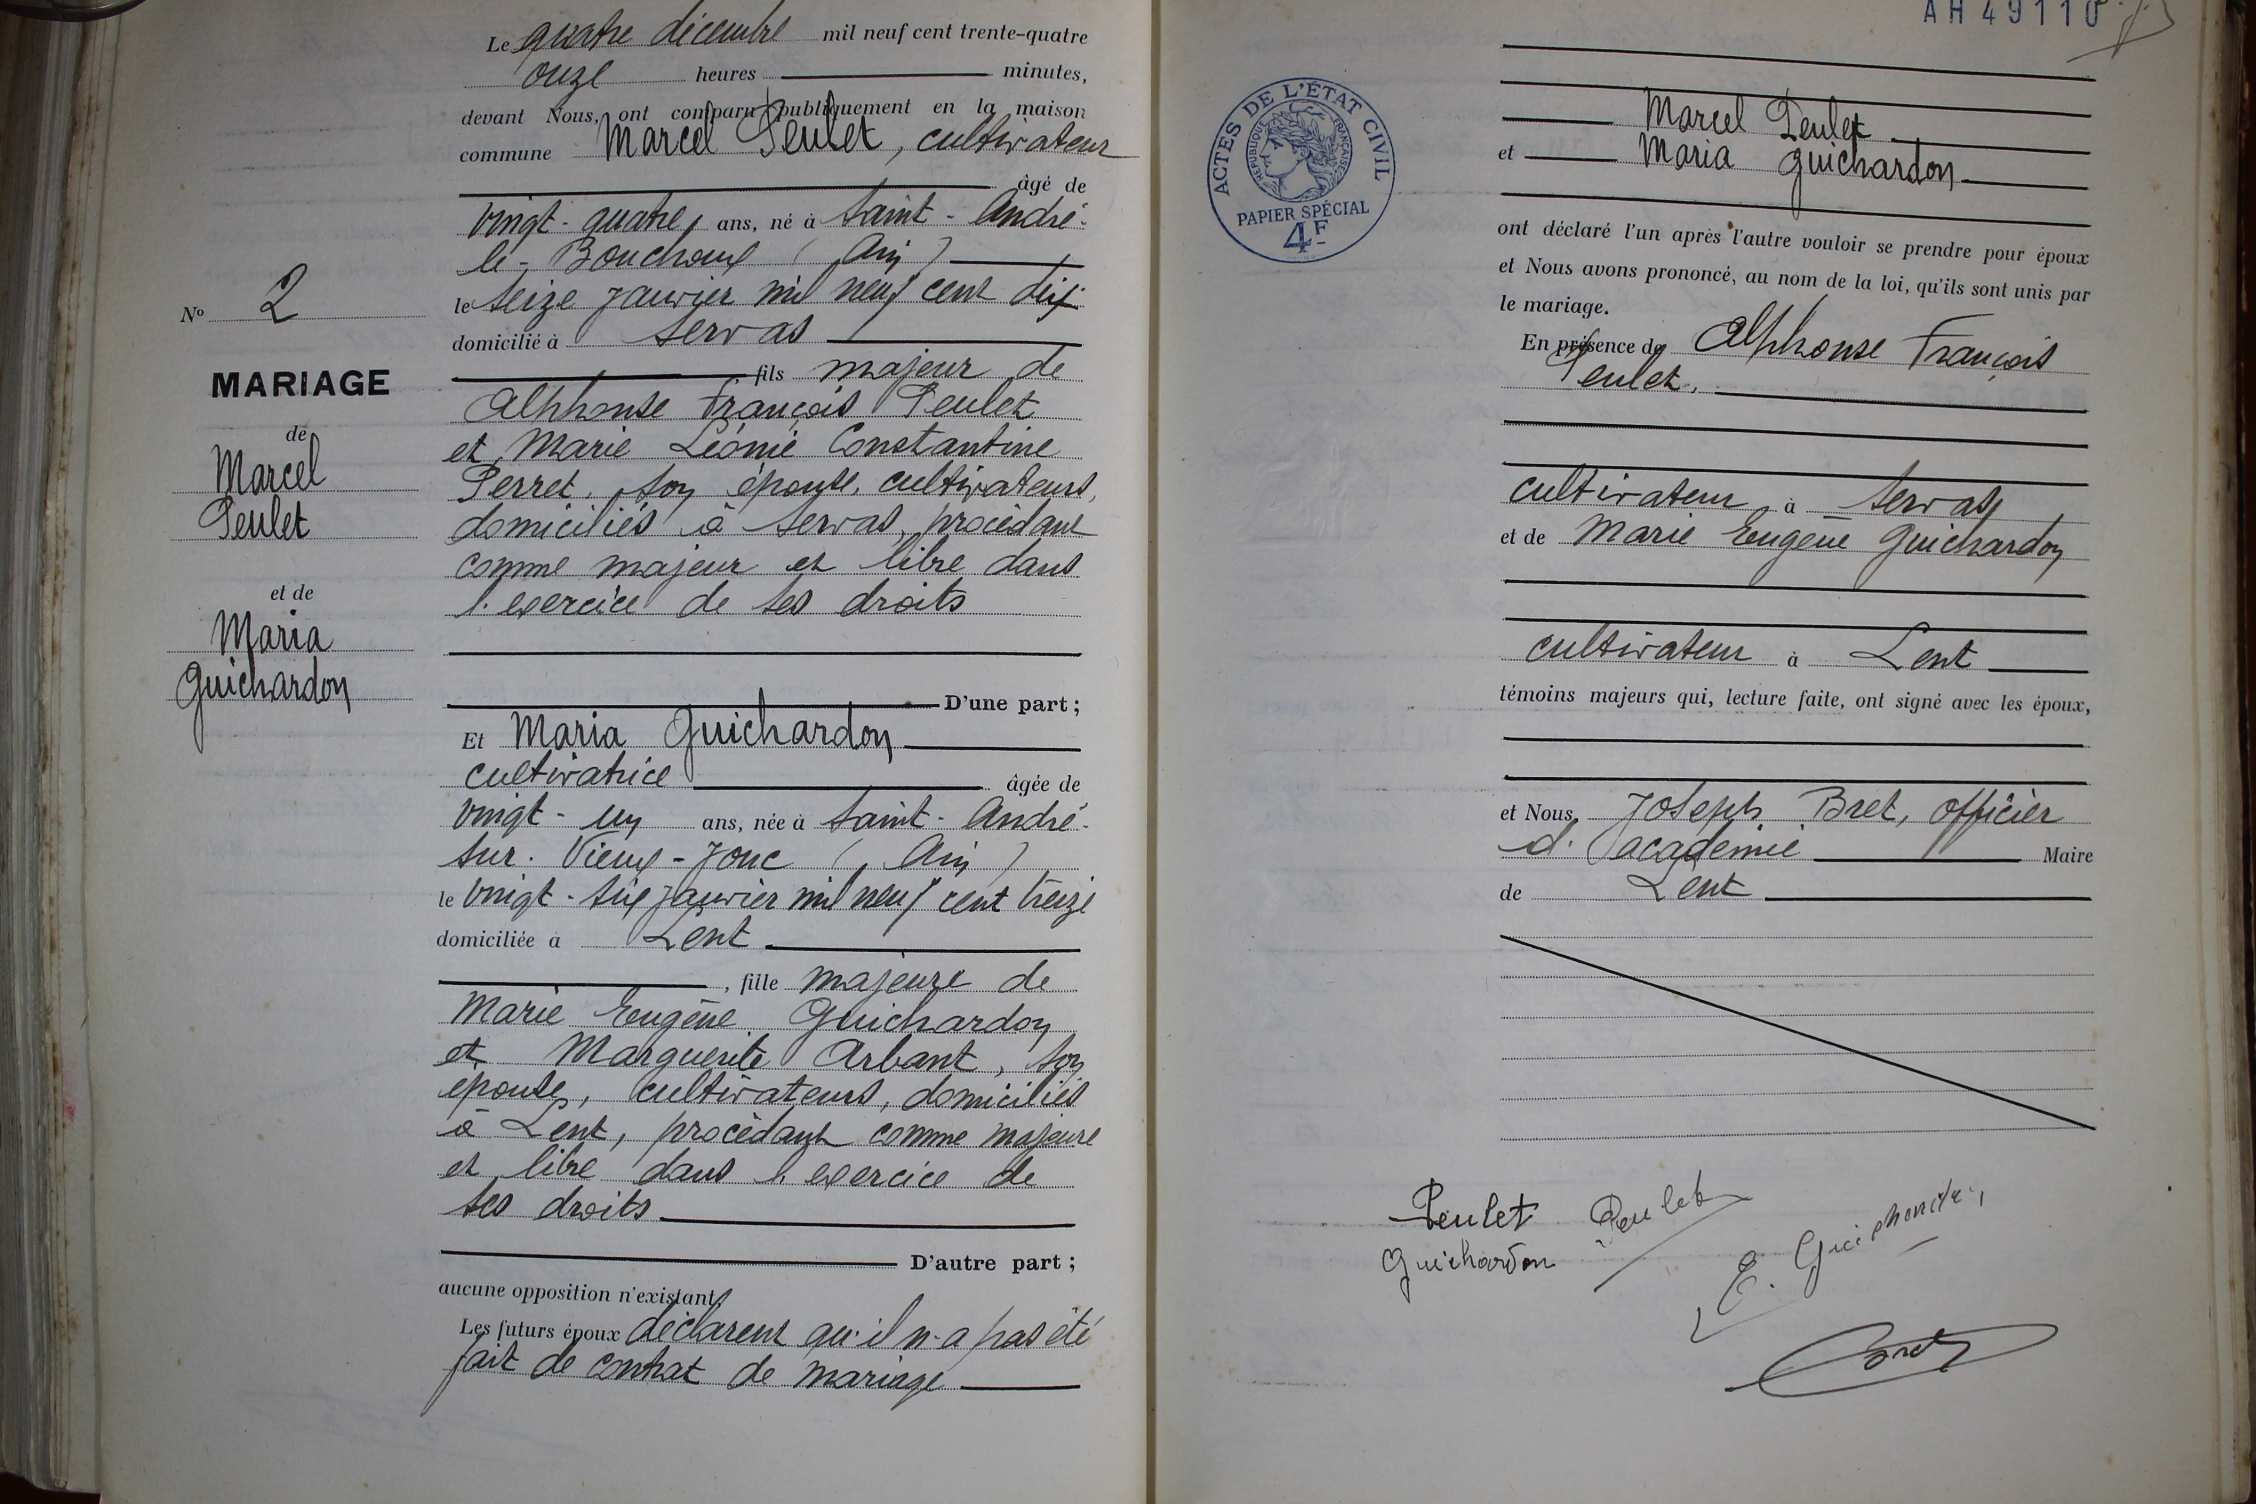 Le quatre décembre mil neuf cent trente-quatre
onze heures minutes,
devant Nous, ont comparu publiquement en la maison
commune Marcel Peulet, cultivateur
âgé de
vingt-quatre ans, né à Saint-André-
le-Bouchoux (Ain)
le seize janvier mil neuf cent dix
domicilié à Servas
fils majeur de
Alphonse François Peulet
et Marie Léonie Constantine
Perret, son épouse, cultivateurs,
domiciliés à Servas, procédant
comme majeur et libre dans
l'exercice de ses droits
D'une part ;
Nº 2
MARIAGE
de
Marcel
Peulet
et de
Maria
Guichardon
Et Maria Guichardon
cultivatrice âgée de
vingt-un ans, née à Saint-André-
sur-Vieux-Jonc (Ain)
le vingt-six janvier mil neuf cent treize
domiciliée à Lent
, fille majeure de
Marie Eugène Guichardon
et Marguerite Arbant, son
épouse, cultivateurs, domiciliés
à Lent, procédant comme majeure
et libre dans l'exercice de
ses droits
D'autre part ;
aucune opposition n'existant.
Les futurs époux déclarent qu'il n'a pas été
fait de contrat de mariage
AH 49110
ACTES DE L'ÉTAT CIVIL
RÉPUBLIQUE FRANÇAISE
PAPIER SPÉCIAL
4F
Marcel Peulet
et Maria Guichardon
ont déclaré l'un après l'autre vouloir se prendre pour époux
et Nous avons prononcé, au nom de la loi, qu'ils sont unis par
le mariage.
En présence de Alphonse François
Peulet,
cultivateur à Servas
et de Marie Eugène Guichardon
cultivateur à Lent
témoins majeurs qui, lecture faite, ont signé avec les époux,
et Nous, Joseph Bret, officier
d'académie Maire
de Lent
Peulet Peulet
Guichardon E. Guichardon
Bret